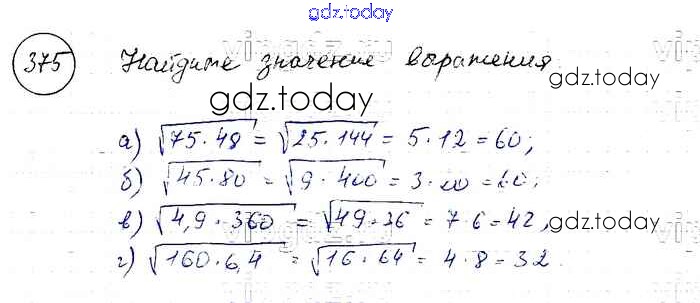 gdz.today
375 Найдите значение выражения
gdz.today
gdz.today
а) √75·48 = √25·144 = 5·12 = 60;
б) √45·80 = √9·400 = 3·20 = 60;
в) √4,9·360 = √49·36 = 7·6 = 42,
gdz.today
г) √160·6,4 = √16·64 = 4·8 = 32.